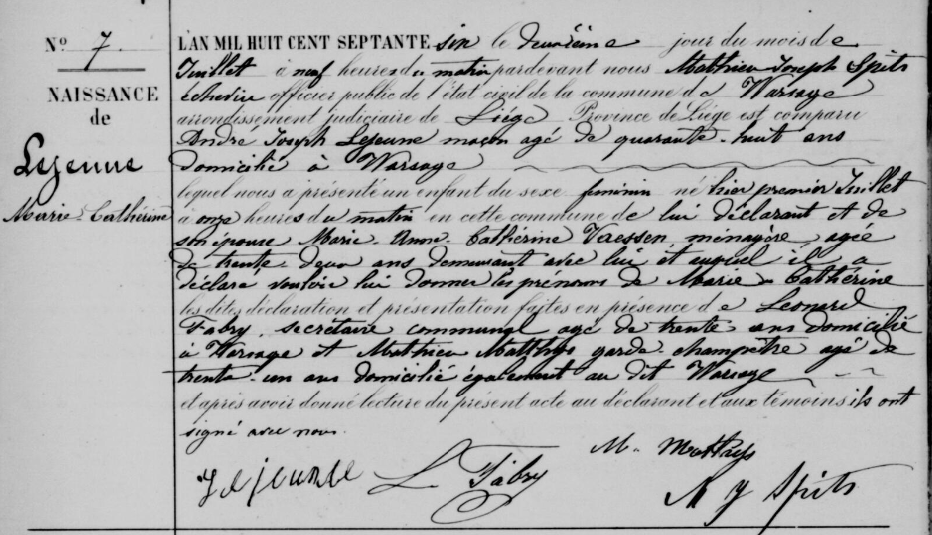 N° 7.
NAISSANCE
de
Lejeune
Marie-Cathérine
L'AN MIL HUIT CENT SEPTANTE six le deuxième jour du mois de
Juillet à neuf heures du matin pardevant nous Matthieu Joseph Spits
échevin officier public de l'état civil de la commune de Warsage
arrondissement judiciaire de Liége Province de Liége est comparu
André Joseph Lejeune maçon agé de quarante-huit ans
domicilié à Warsage
lequel nous a présenté un enfant du sexe féminin né hier premier Juillet
à onze heures du matin en cette commune de lui déclarant et de
son épouse Marie-Anne-Cathérine Vaessen ménagère, agée
de trente-deux ans demeurant avec lui et auquel il a
déclaré vouloir lui donner les prénoms de Marie-Cathérine
les dites déclaration et présentation faites en présence de Leonard
Fabry, secrétaire communal agé de trente ans domicilié
à Warsage et Mathieu Matthys garde-champêtre agé de
trente-un ans domicilié également au dit Warsage
et après avoir donné lecture du présent acte au déclarant et aux témoins ils ont
signé avec nous.
Lejeunee L. Fabry M. Matthys
M J Spits